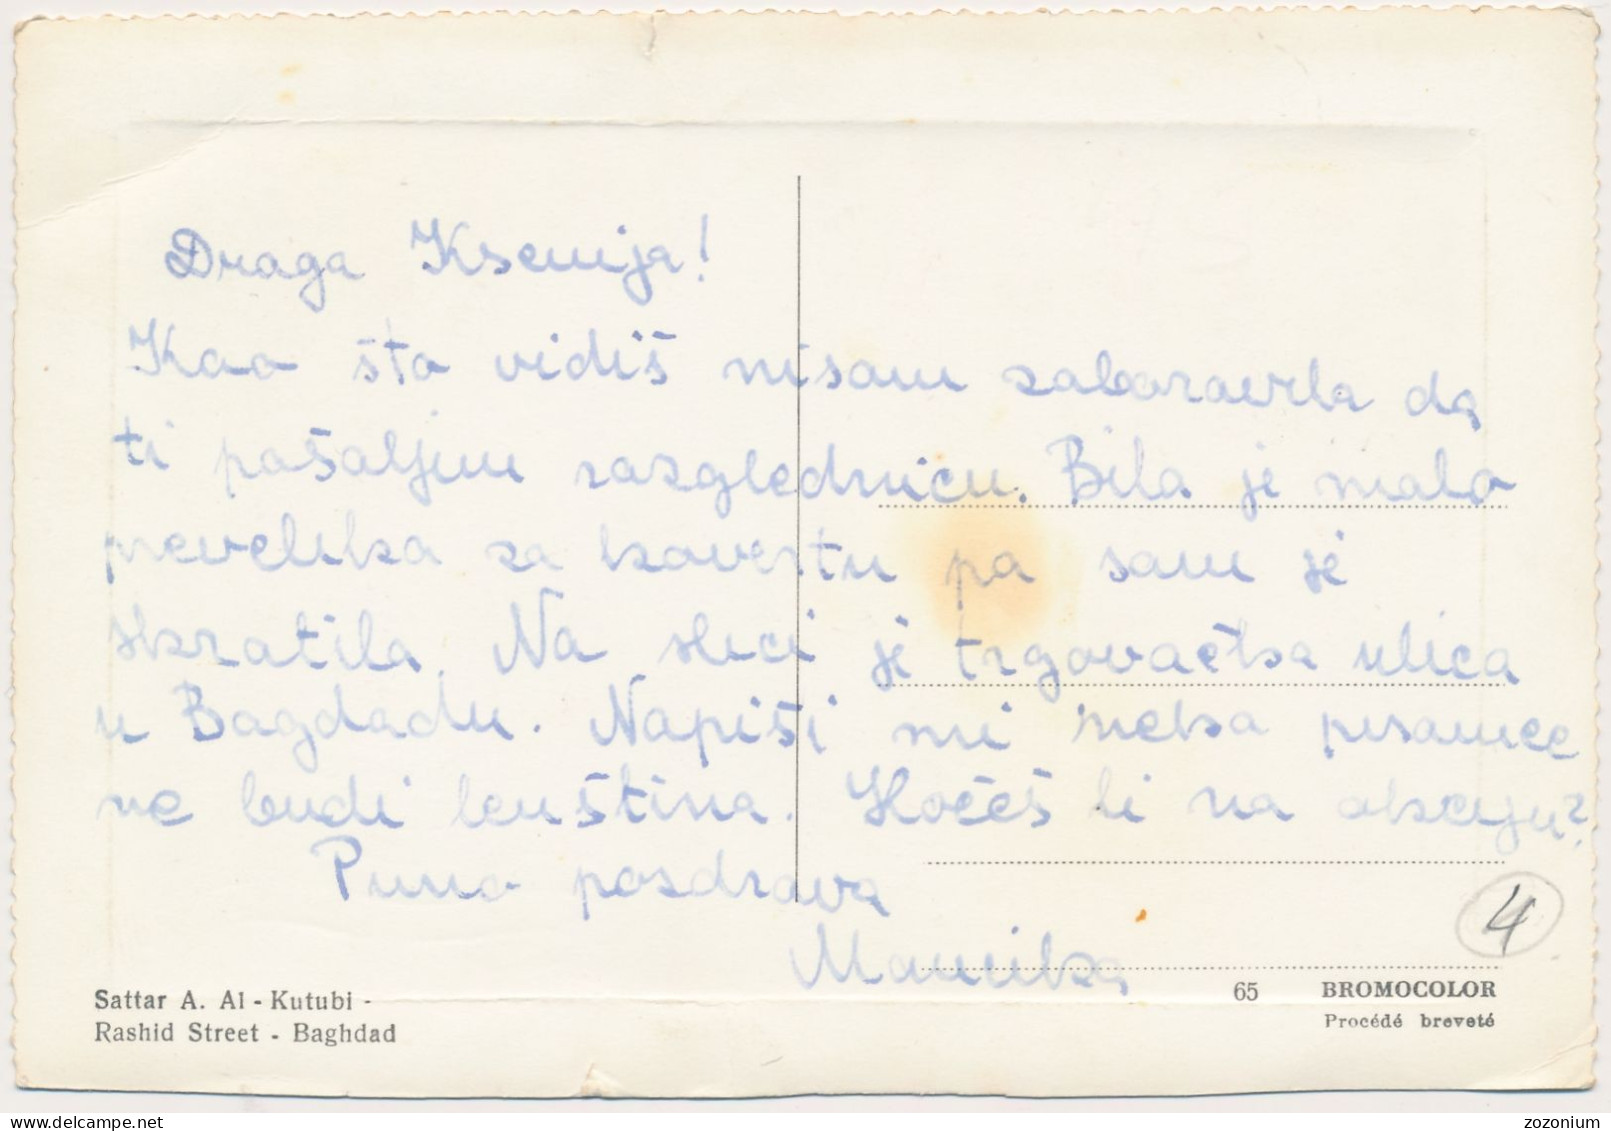 Draga Ksenija!
Kao što vidiš nisam zaboravila da
ti pošaljem razglednicu. Bila je malo
prevelika za kovertu pa sam je
skratila. Na slici je trgovačka ulica
u Bagdadu. Napiši mi neka pisamce
ne budi lenština. Hoćeš li na ekskurziju?
Puno pozdrava
Mamika
4
Sattar A. Al - Kutubi -
Rashid Street - Baghdad
65 BROMOCOLOR
Procédé breveté
zozonium
delcampe.net